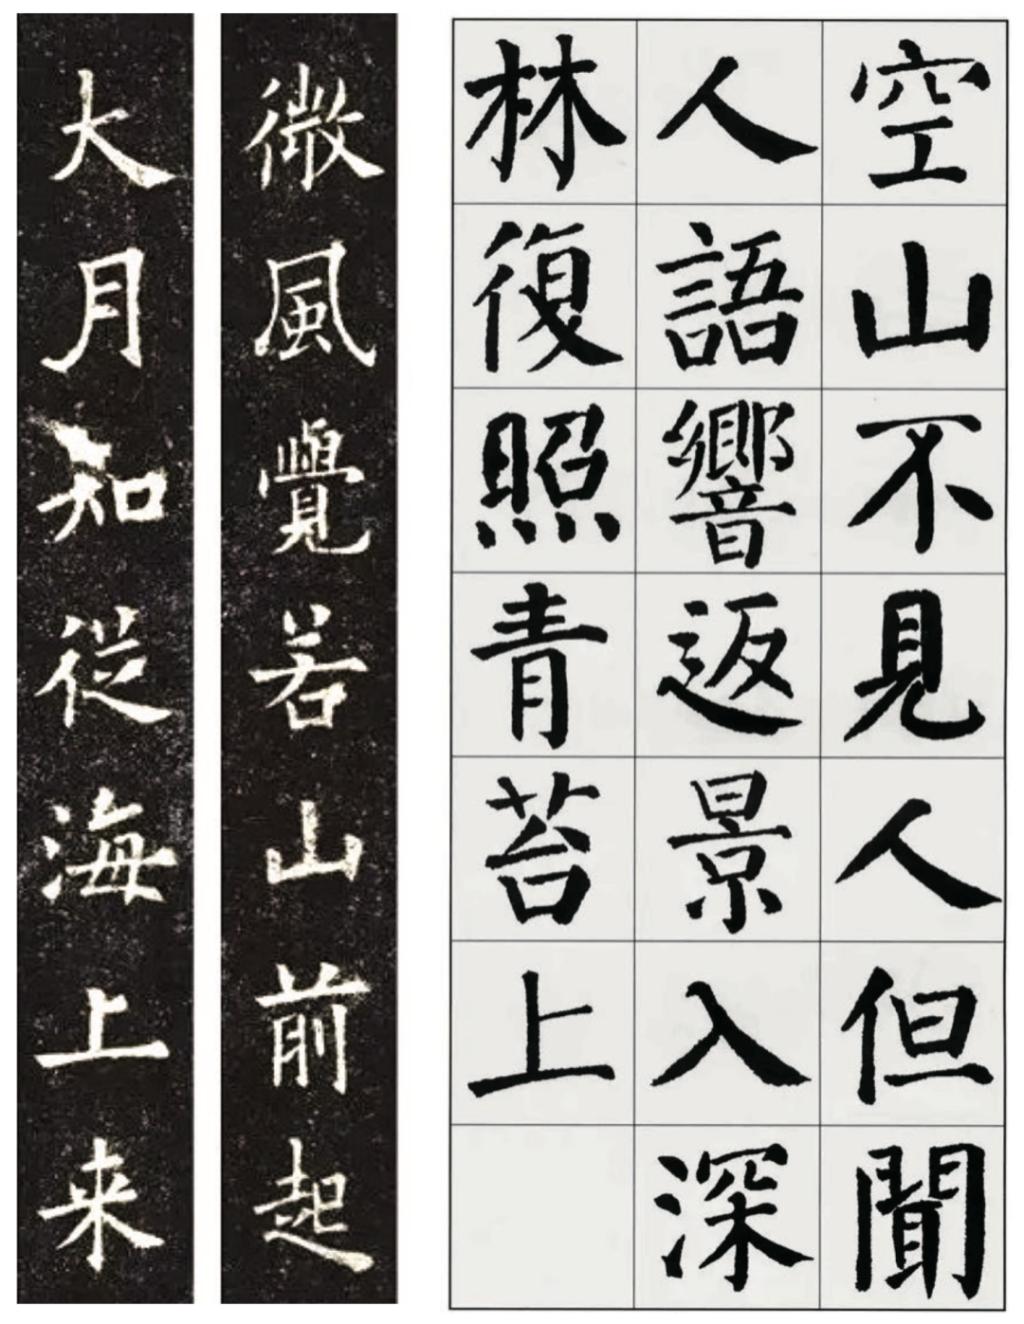 空山不見人但聞
人語響返景入深
林復照青苔上
微風覺若山前起
大月知從海上来